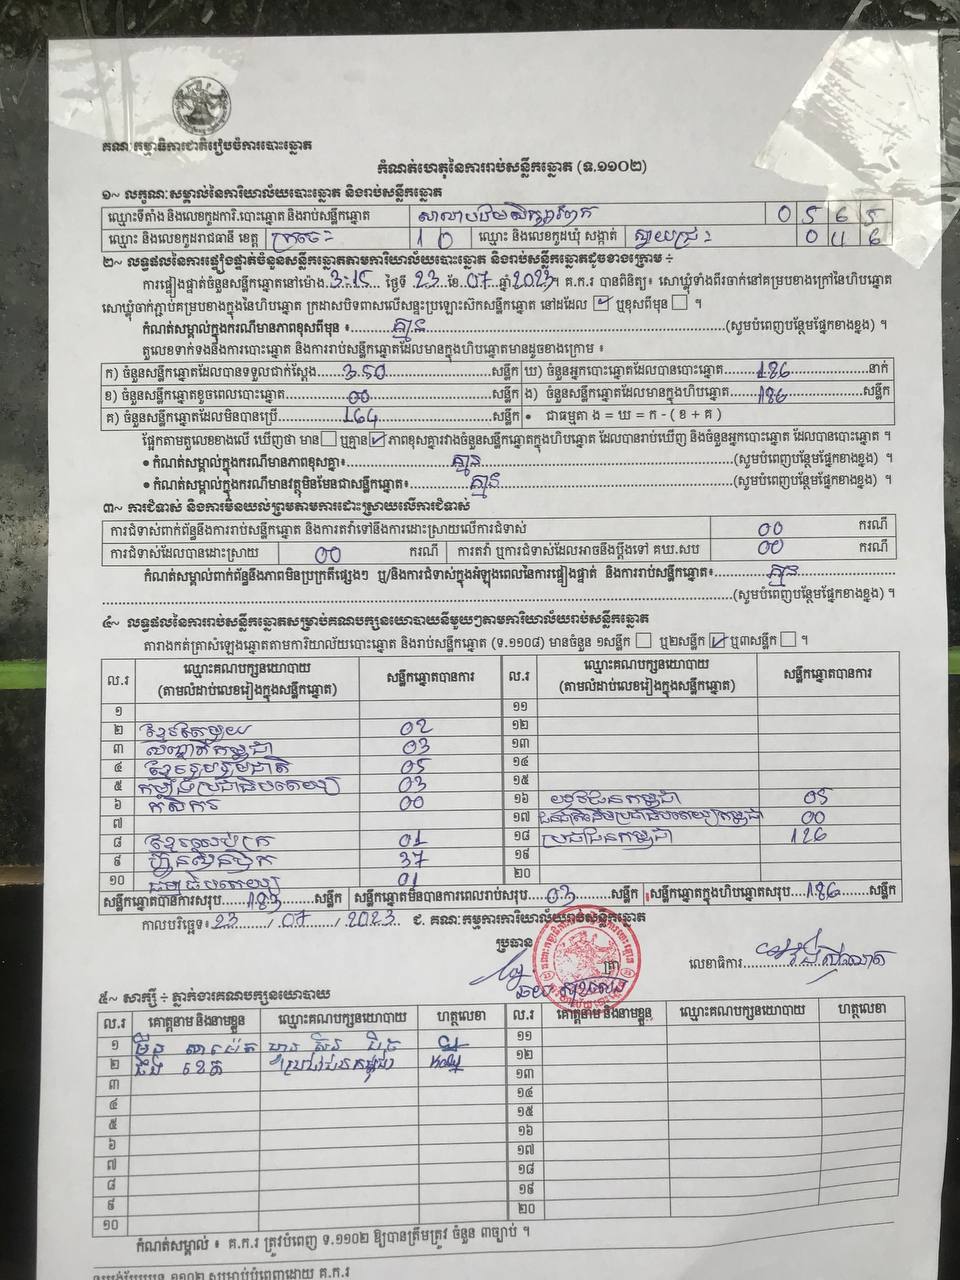 គណៈកម្មាធិការជាតិរៀបចំការបោះឆ្នោត
កំណត់ហេតុនៃការរាប់សន្លឹកឆ្នោត (ទ.១១០២)
១~ លក្ខណៈសម្គាល់នៃការិយាល័យបោះឆ្នោត និងរាប់សន្លឹកឆ្នោត
ឈ្មោះទីតាំង និងលេខកូដការិ.បោះឆ្នោត និងរាប់សន្លឹកឆ្នោត 0 5 6 5
ឈ្មោះ និងលេខកូដរាជធានី ខេត្ត ក្រចេះ 1 0 ឈ្មោះ និងលេខកូដឃុំ សង្កាត់ ស្វាយជ្រះ 0 4 6
២~ លទ្ធផលនៃការផ្ទៀងផ្ទាត់ចំនួនសន្លឹកឆ្នោតតាមការិយាល័យបោះឆ្នោត និងរាប់សន្លឹកឆ្នោតដូចខាងក្រោម ÷
ការផ្ទៀងផ្ទាត់ចំនួនសន្លឹកឆ្នោតនៅម៉ោង 3:15 ថ្ងៃទី 23 ខែ 07 ឆ្នាំ 2023។ គ.ក.រ បានពិនិត្យ៖ សោឃ្លុំទាំងពីរចាក់នៅគម្របខាងក្រៅនៃហិបឆ្នោត
សោឃ្លុំចាក់ភ្ជាប់គម្របខាងក្នុងនៃហិបឆ្នោត ក្រដាសបិទពាសលើសន្ទះប្រឡោះស៊កសន្លឹកឆ្នោត នៅដដែល ☑ ឬខុសពីមុន ☐ ។
កំណត់សម្គាល់ក្នុងករណីមានភាពខុសពីមុន ៖ គ្មាន (សូមបំពេញបន្ថែមផ្នែកខាងខ្នង) ។
តួលេខទាក់ទងនឹងការបោះឆ្នោត និងការរាប់សន្លឹកឆ្នោតដែលមានក្នុងហិបឆ្នោតមានដូចខាងក្រោម ៖
ក) ចំនួនសន្លឹកឆ្នោតដែលបានទទួលជាក់ស្ដែង 350 សន្លឹក ឃ) ចំនួនអ្នកបោះឆ្នោតដែលបានបោះឆ្នោត 186 នាក់
ខ) ចំនួនសន្លឹកឆ្នោតខូចពេលបោះឆ្នោត 00 សន្លឹក ង) ចំនួនសន្លឹកឆ្នោតដែលមានក្នុងហិបឆ្នោត 186 សន្លឹក
គ) ចំនួនសន្លឹកឆ្នោតដែលមិនបានប្រើ 164 សន្លឹក • ជាធម្មតា ង = ឃ = ក - ( ខ + គ )
ផ្អែកតាមតួលេខខាងលើ ឃើញថា មាន ☐ ឬគ្មាន ☑ ភាពខុសគ្នារវាងចំនួនសន្លឹកឆ្នោតក្នុងហិបឆ្នោត ដែលបានរាប់ឃើញ និងចំនួនអ្នកបោះឆ្នោត ដែលបានបោះឆ្នោត ។
• កំណត់សម្គាល់ក្នុងករណីមានភាពខុសគ្នា៖ គ្មាន (សូមបំពេញបន្ថែមផ្នែកខាងខ្នង) ។
• កំណត់សម្គាល់ក្នុងករណីមានវត្ថុមិនមែនជាសន្លឹកឆ្នោត៖ គ្មាន (សូមបំពេញបន្ថែមផ្នែកខាងខ្នង) ។
៣~ ការជំទាស់ និងការមិនយល់ព្រមតាមការដោះស្រាយលើការជំទាស់
ការជំទាស់ពាក់ព័ន្ធនឹងការរាប់សន្លឹកឆ្នោត និងការតវ៉ាទៅនឹងការដោះស្រាយលើការជំទាស់ 00 ករណី
ការជំទាស់ដែលបានដោះស្រាយ 00 ករណី ការតវ៉ា ឬការជំទាស់ដែលអាចនឹងប្ដឹងទៅ គឃ.សប 00 ករណី
កំណត់សម្គាល់ពាក់ព័ន្ធនឹងភាពមិនប្រក្រតីផ្សេងៗ ឬ/និងការជំទាស់ក្នុងអំឡុងពេលនៃការផ្ទៀងផ្ទាត់ និងការរាប់សន្លឹកឆ្នោត៖ គ្មាន
(សូមបំពេញបន្ថែមផ្នែកខាងខ្នង) ។
៤~ លទ្ធផលនៃការរាប់សន្លឹកឆ្នោតសម្រាប់គណបក្សនយោបាយនីមួយៗតាមការិយាល័យរាប់សន្លឹកឆ្នោត
តារាងកត់ត្រាសំឡេងឆ្នោតតាមការិយាល័យបោះឆ្នោត និងរាប់សន្លឹកឆ្នោត (ទ.១១០៨) មានចំនួន ១សន្លឹក ☐ ឬ២សន្លឹក ☑ ឬ៣សន្លឹក ☐ ។
ល.រ ឈ្មោះគណបក្សនយោបាយ (តាមលំដាប់លេខរៀងក្នុងសន្លឹកឆ្នោត) សន្លឹកឆ្នោតបានការ ល.រ ឈ្មោះគណបក្សនយោបាយ (តាមលំដាប់លេខរៀងក្នុងសន្លឹកឆ្នោត) សន្លឹកឆ្នោតបានការ
១ ១១
២ ខ្មែរតែមួយ 02 ១២
៣ សញ្ជាតិកម្ពុជា 03 ១៣
៤ ខ្មែររួបរួមជាតិ 05 ១៤
៥ កម្លាំងប្រជាធិបតេយ្យ 03 ១៥
៦ កសិករ 00 ១៦ យុវជនកម្ពុជា 05
៧ ១៧ ជនជាតិដើមប្រជាធិបតេយ្យកម្ពុជា 00
៨ ខ្មែរឈប់ក្រ 01 ១៨ ប្រជាជនកម្ពុជា 126
៩ ហ៊្វុនស៊ិនប៉ិច 37 ១៩
១០ ធម្មាធិបតេយ្យ 01 ២០
សន្លឹកឆ្នោតបានការសរុប 183 សន្លឹក សន្លឹកឆ្នោតមិនបានការពេលរាប់សរុប 03 សន្លឹក សន្លឹកឆ្នោតក្នុងហិបឆ្នោតសរុប 186 សន្លឹក
កាលបរិច្ឆេទ៖ 23 / 07 / 2023 ជ. គណៈកម្មការការិយាល័យរាប់សន្លឹកឆ្នោត
ប្រធាន
ត្រា លេខាធិការ
៥~ សាក្សី ÷ ភ្នាក់ងារគណបក្សនយោបាយ
ល.រ គោត្តនាម និងនាមខ្លួន ឈ្មោះគណបក្សនយោបាយ ហត្ថលេខា ល.រ គោត្តនាម និងនាមខ្លួន ឈ្មោះគណបក្សនយោបាយ ហត្ថលេខា
១ ១១
២ ប្រជាជនកម្ពុជា ១២
៣ ១៣
៤ ១៤
៥ ១៥
៦ ១៦
៧ ១៧
៨ ១៨
៩ ១៩
១០ ២០
កំណត់សម្គាល់ ៖ គ.ក.រ ត្រូវបំពេញ ទ.១១០២ ឱ្យបានត្រឹមត្រូវ ចំនួន ៣ច្បាប់ ។